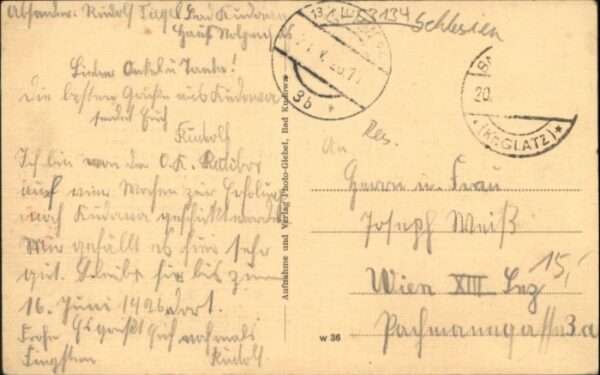 Absender: Rudolf Bad Kudowa
Schlesien
Lieber Onkel u. Tante!
Die besten Grüße aus Kudowa
sendet Euch
Rudolf
Ich bin von der O.K.
auf vier Wochen zur Erholung
nach Kudowa geschickt worden
Mir gefällt es hier sehr
gut. Bleibe hier bis zum
16. Juni 1926 dort.
Frohe Es grüßt Euch nochmals
Pfingsten Rudolf
Aufnahme und Verlag Photo-Giebel, Bad Kudowa
3b
20.
(Kr. GLATZ)
An
Herrn u. Frau
Joseph Weiß
Wien XIII
15,-
Pachmanngasse 3a
w 36